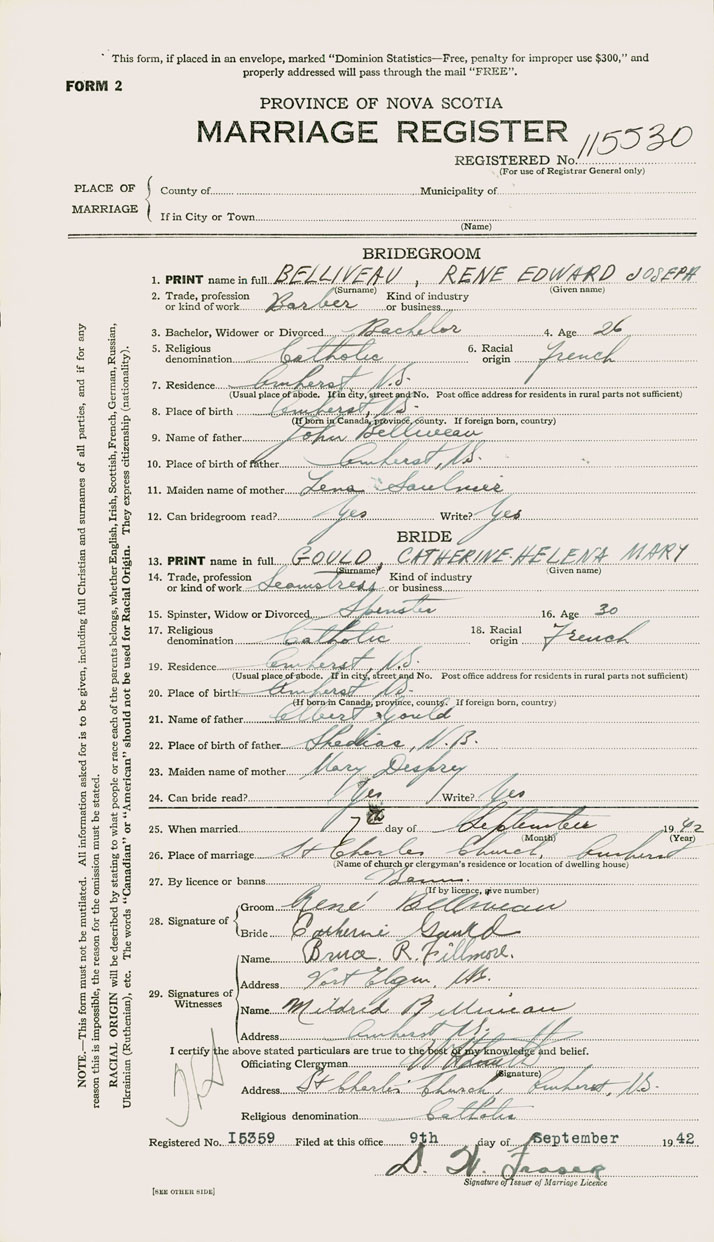 This form, if placed in an envelope, marked "Dominion Statistics—Free, penalty for improper use $300," and
properly addressed will pass through the mail "FREE".
FORM 2
PROVINCE OF NOVA SCOTIA
MARRIAGE REGISTER
REGISTERED No. 115530
(For use of Registrar General only)
PLACE OF MARRIAGE
County of Municipality of
If in City or Town
(Name)
BRIDEGROOM
1. PRINT name in full BELLIVEAU, RENE EDWARD JOSEPH
(Surname) (Given name)
2. Trade, profession or kind of work Barber Kind of industry or business
3. Bachelor, Widower or Divorced Bachelor 4. Age 26
5. Religious denomination Catholic 6. Racial origin French
7. Residence Amherst, N.S.
(Usual place of abode. If in city, street and No. Post office address for residents in rural parts not sufficient)
8. Place of birth Amherst, N.S.
(If born in Canada, province, county. If foreign born, country)
9. Name of father John Belliveau
10. Place of birth of father Amherst, N.S.
11. Maiden name of mother Lena Saulnier
12. Can bridegroom read? Yes Write? Yes
BRIDE
13. PRINT name in full GOULD, CATHERINE-HELENA MARY
(Surname) (Given name)
14. Trade, profession or kind of work Seamstress Kind of industry or business
15. Spinster, Widow or Divorced Spinster 16. Age 30
17. Religious denomination Catholic 18. Racial origin French
19. Residence Amherst, N.S.
(Usual place of abode. If in city, street and No. Post office address for residents in rural parts not sufficient)
20. Place of birth Amherst N.S.
(If born in Canada, province, county. If foreign born, country)
21. Name of father Albert Gould
22. Place of birth of father Shediac, N.B.
23. Maiden name of mother Mary
24. Can bride read? Yes Write? Yes
25. When married 7th day of September 1942
(Month) (Year)
26. Place of marriage St Charles Church, Amherst
(Name of church or clergyman's residence or location of dwelling house)
27. By licence or banns Banns.
(If by licence, give number)
28. Signature of
Groom René Belliveau
Bride Catherine Gould
29. Signatures of Witnesses
Name Bruce. R. Fillmore.
Address Port Elgin, N.B.
Name Mildred Belliveau
Address Amherst N.S.
I certify the above stated particulars are true to the best of my knowledge and belief.
Officiating Clergyman
(Signature)
Address St Charles' Church, Amherst, N.S.
Religious denomination Catholic
Registered No. 15359 Filed at this office 9th day of September 1942
D. W. Fraser
Signature of Issuer of Marriage Licence
[SEE OTHER SIDE]
NOTE.—This form must not be mutilated. All information asked for is to be given, including full Christian and surnames of all parties, and if for any
reason this is impossible, the reason for the omission must be stated.
RACIAL ORIGIN will be described by stating to what people or race each of the parents belongs, whether English, Irish, Scottish, French, German, Russian,
Ukrainian (Ruthenian), etc. The words "Canadian" or "American" should not be used for Racial Origin. They express citizenship (nationality).